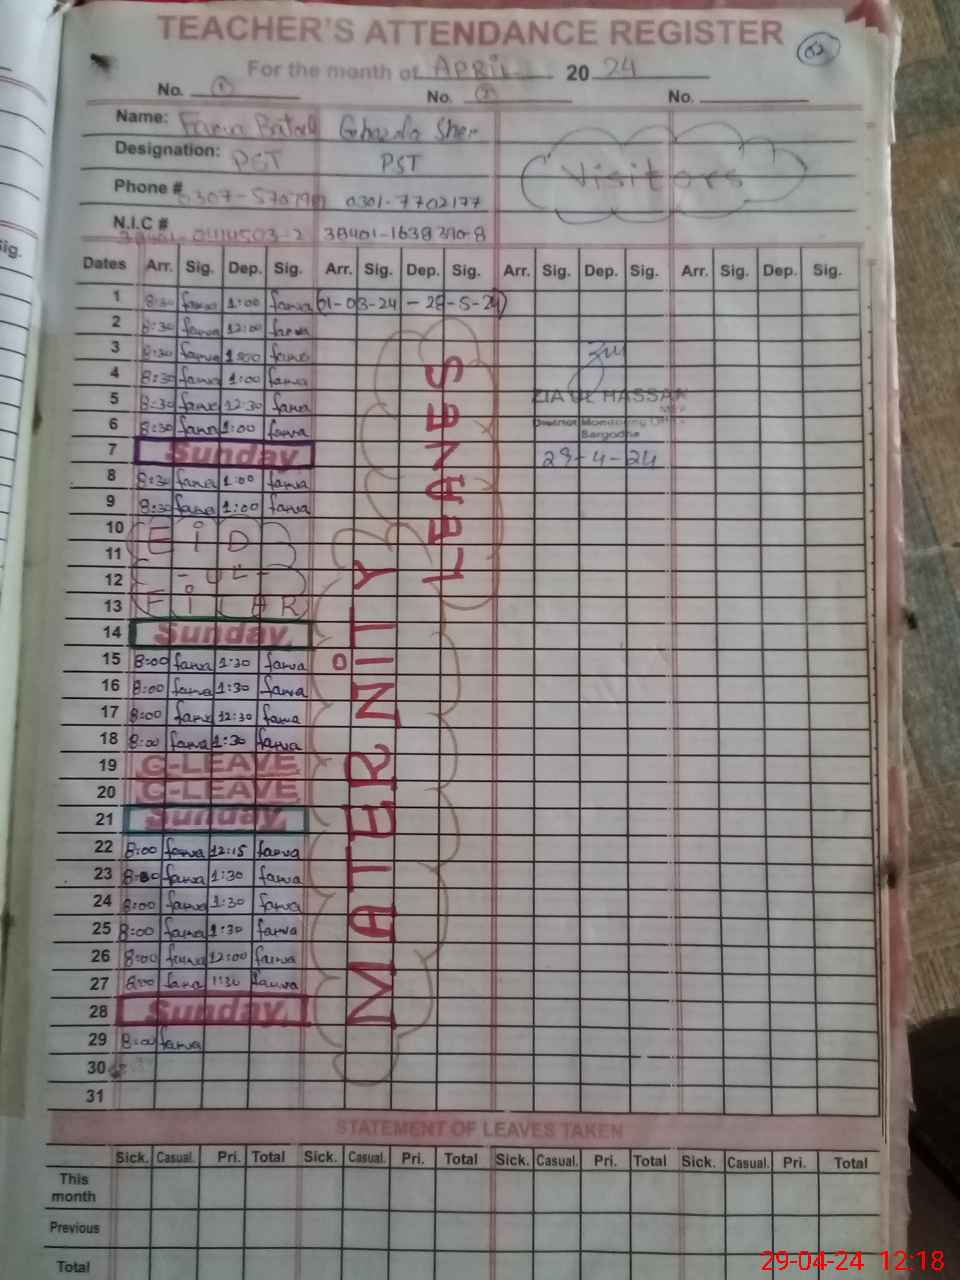 TEACHER'S ATTENDANCE REGISTER
02
For the month of APRIL 2024
No. 1 No. 2 No.
Name: Farwa Batool Ghazala Sher
Designation: PST PST
Visitors
Phone # 0301-7702177
N.I.C # 38401-0414503-2 38401-1638390-8
Dates Arr. Sig. Dep. Sig. Arr. Sig. Dep. Sig. Arr. Sig. Dep. Sig. Arr. Sig. Dep. Sig.
1 8:30 farwa 1:00 farwa (01-03-24 - 28-5-24)
2 8:30 farwa 12:00 farwa
3 8:30 farwa 1:00 farwa
4 8:30 farwa 1:00 farwa
5 8:30 farwa 12:30 farwa
ZIA UL HASSAN
6 8:30 farwa 1:00 farwa
District Monitoring
Sargodha
7 Sunday
29-4-24
8 8:30 farwa 1:00 farwa
9 8:30 farwa 1:00 farwa
10 EID
11
12 -UL-
13 FITAR
14 Sunday
15 8:00 farwa 1:30 farwa
16 8:00 farwa 1:30 farwa
17 8:00 farwa 12:30 farwa
18 8:00 farwa 1:30 farwa
19 C-LEAVE
20 C-LEAVE
21 Sunday
22 8:00 farwa 12:15 farwa
23 8:00 farwa 1:30 farwa
24 8:00 farwa 1:30 farwa
25 8:00 farwa 1:30 farwa
26 8:00 farwa 12:00 farwa
27 8:00 farwa 1:30 farwa
28 Sunday
29 8:00 farwa
30
31
MATERNITY
LEAVES
STATEMENT OF LEAVES TAKEN
Sick. Casual. Pri. Total Sick. Casual. Pri. Total Sick. Casual. Pri. Total Sick. Casual. Pri. Total
This
month
Previous
Total
29-04-24 12:18